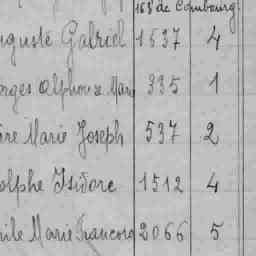 168 de Combourg
uguste Gabriel 1537 4
orges Alphonse Marie 335 1
Marie Joseph 537 2
olphe Isidore 1512 4
ile Marie Francois 2066 5